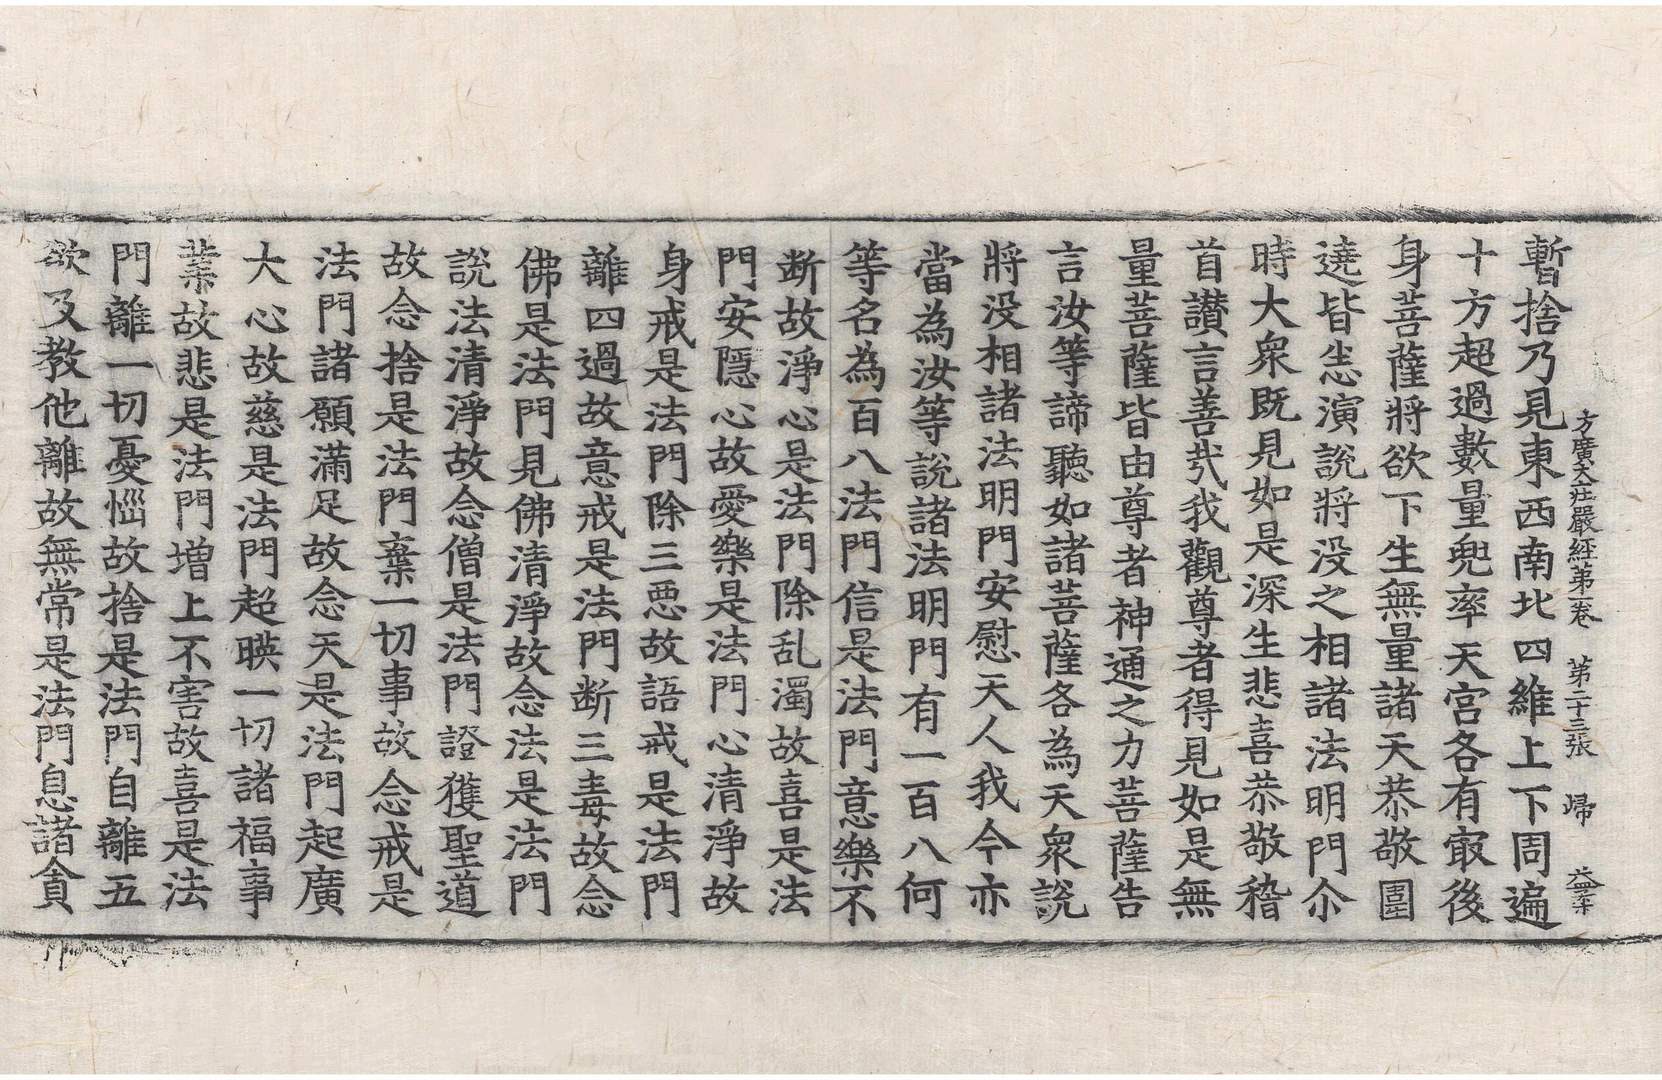 方廣大莊嚴經第一卷 第二十三張 歸
暫捨乃見東西南北四維上下周遍
十方超過數量兜率天宮各有㝡後
身菩薩將欲下生無量諸天恭敬圍
遶皆悉演說將没之相諸法明門尒
時大衆既見如是深生悲喜恭敬稽
首讃言善㢤我觀尊者得見如是無
量菩薩皆由尊者神通之力菩薩告
言汝等諦聽如諸菩薩各為天衆說
將没相諸法明門安慰天人我今亦
當為汝等說諸法明門有一百八何
等名為百八法門信是法門意樂不
断故淨心是法門除乱濁故喜是法
門安隱心故愛樂是法門心清淨故
身戒是法門除三惡故語戒是法門
離四過故意戒是法門断三毒故念
佛是法門見佛清淨故念法是法門
說法清淨故念僧是法門證獲聖道
故念捨是法門棄一切事故念戒是
法門諸願滿足故念天是法門起廣
大心故慈是法門超暎一切諸福事
業故悲是法門增上不害故喜是法
門離一切憂惱故捨是法門自離五
欲及教他離故無常是法門息諸貪